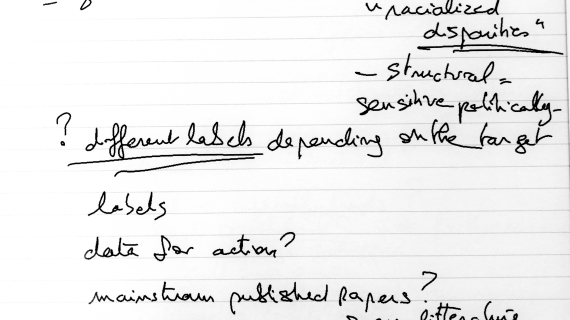 "racialized
disparities"
- structural =
sensitive politically-
? different labels depending on the target
labels
data for action?
mainstream published papers?
litterature